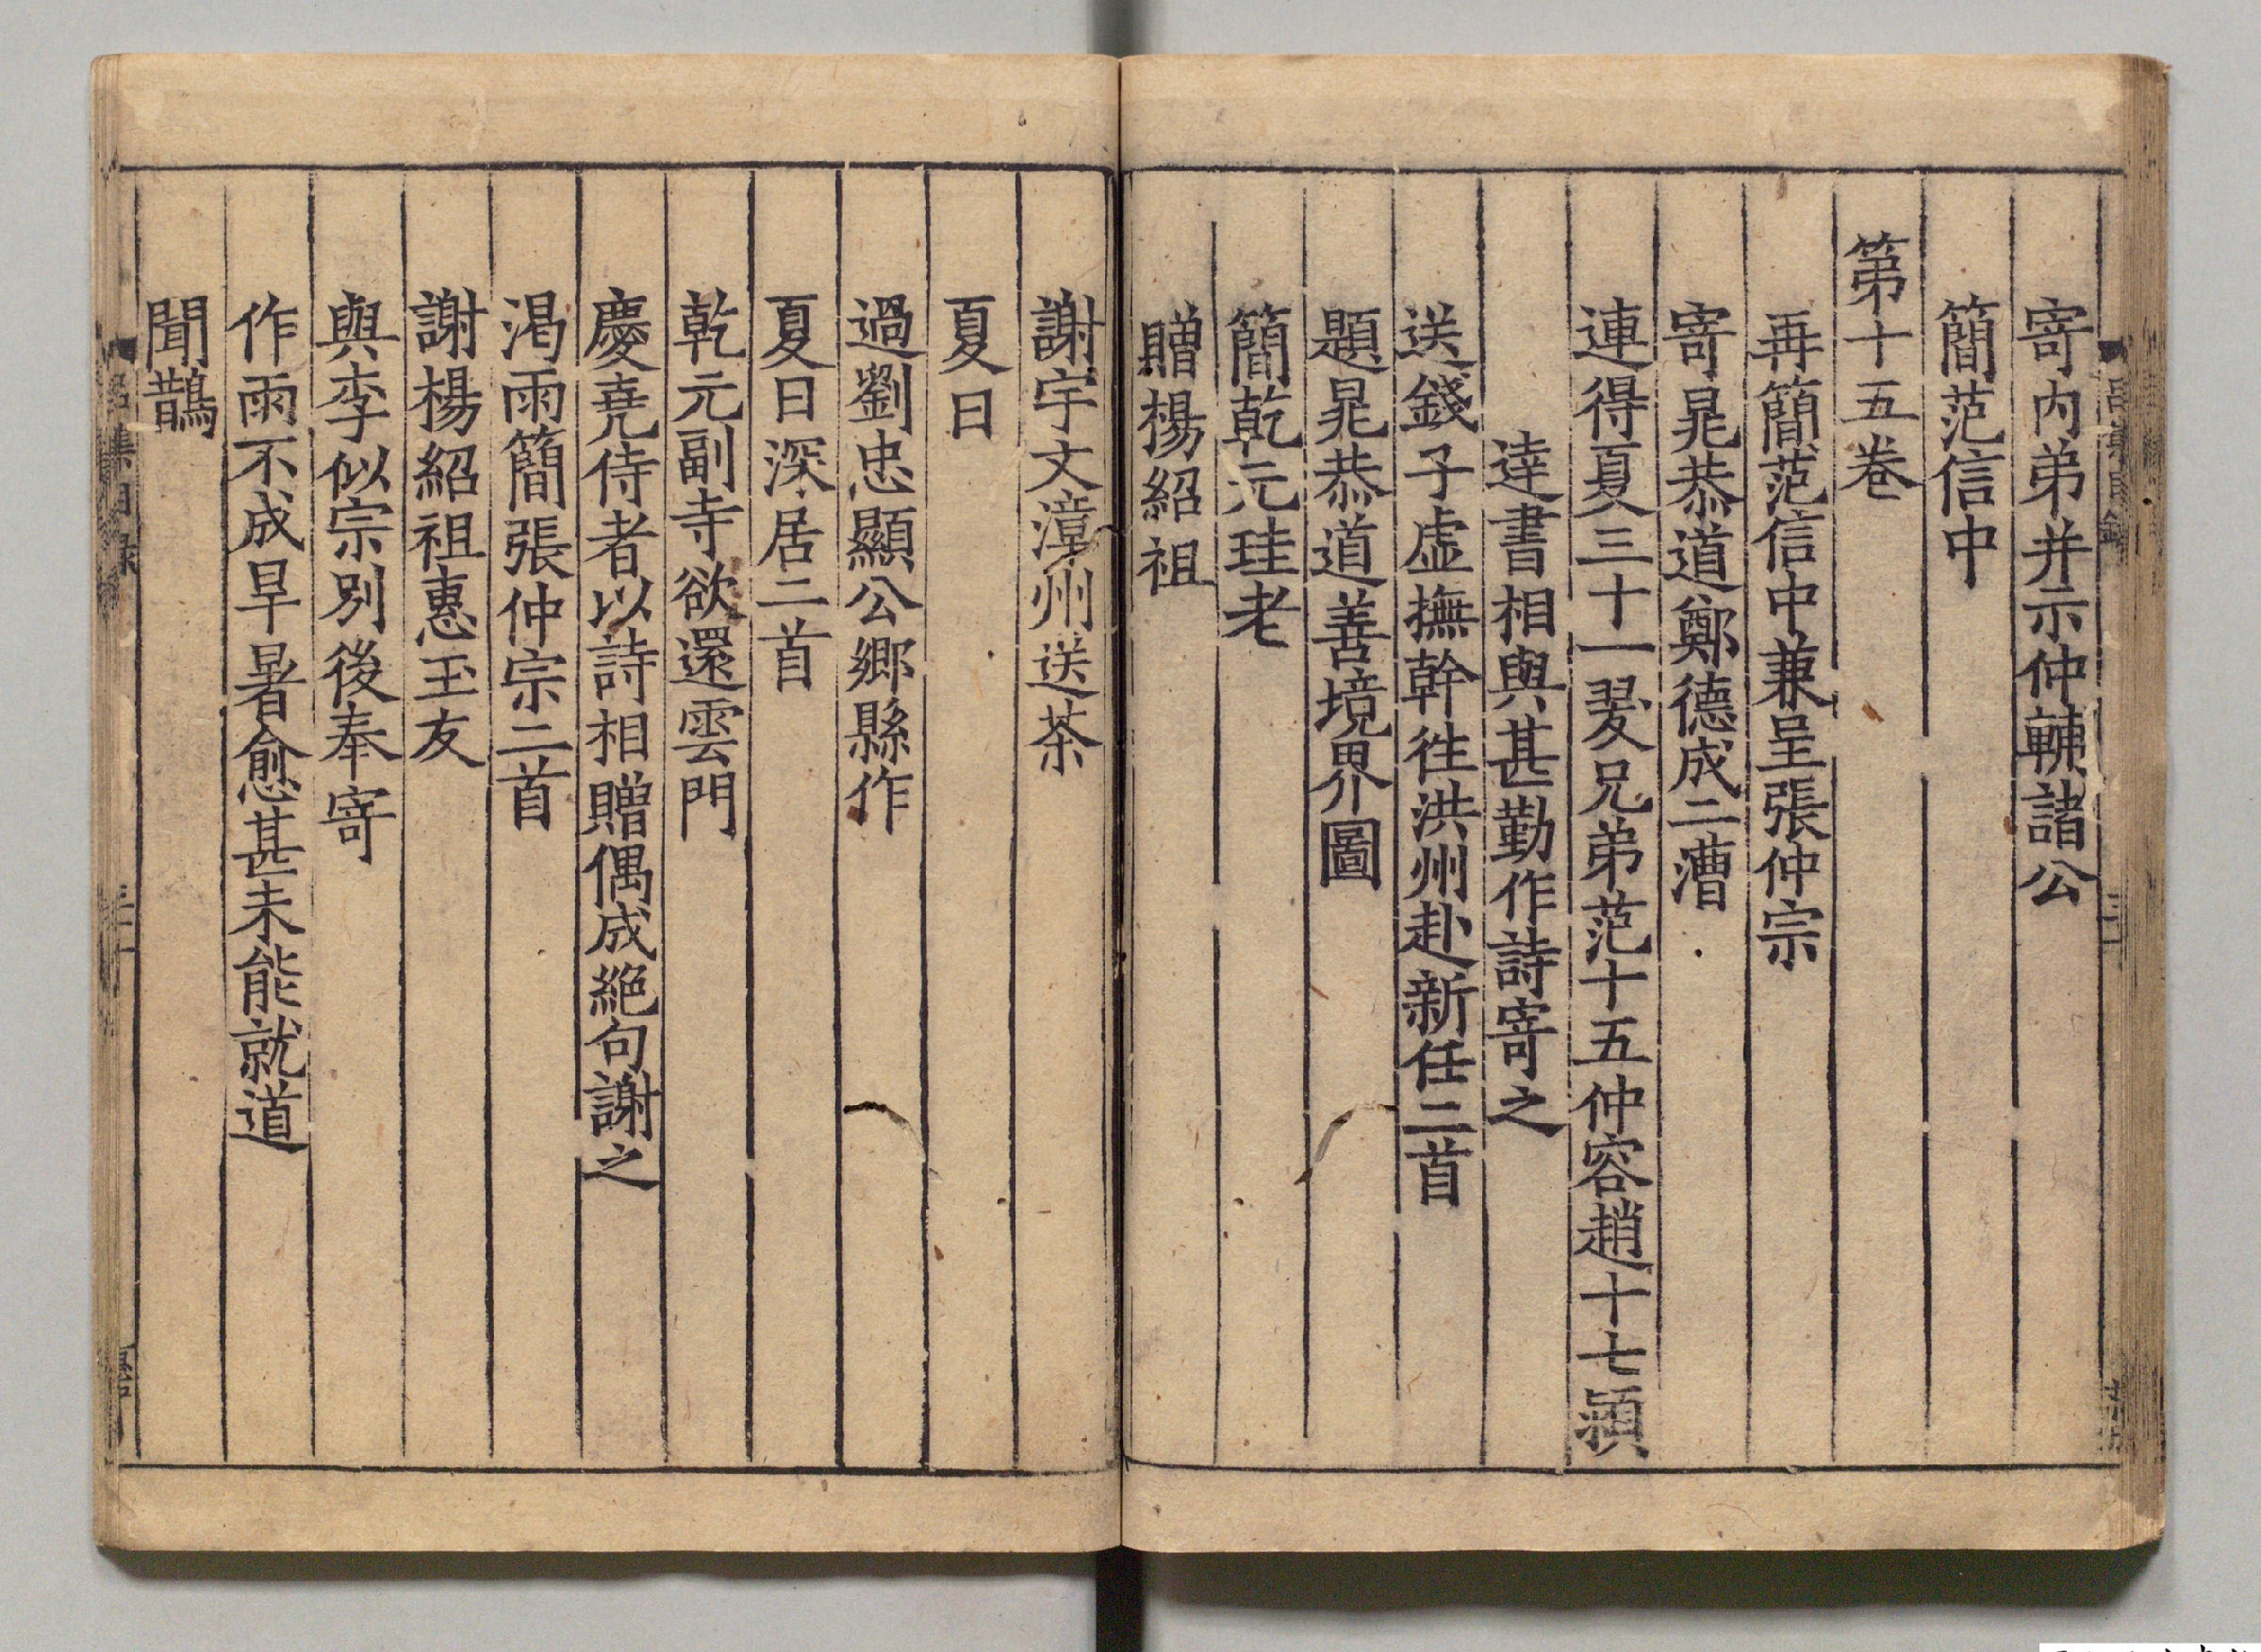 寄內弟并示仲輔諸公
簡范信中
第十五卷
再簡范信中兼呈張仲宗
寄晁恭道鄭德成二漕
連得夏三十一叕兄弟范十五仲容趙十七頴
達書相與甚勤作詩寄之
送錢子虛撫幹徃洪州赴新任二首
題晁恭道善境界圖
簡乾元珪老
贈楊紹祖
謝宇文漳州送茶
夏日
過劉忠顯公鄉縣作
夏日深居二首
乾元副寺欲還雲門
慶堯侍者以詩相贈偶成絕句謝之
渴雨簡張仲宗二首
謝楊紹祖惠玉友
與李似宗別後奉寄
作雨不成旱暑愈甚未能就道
聞鵲